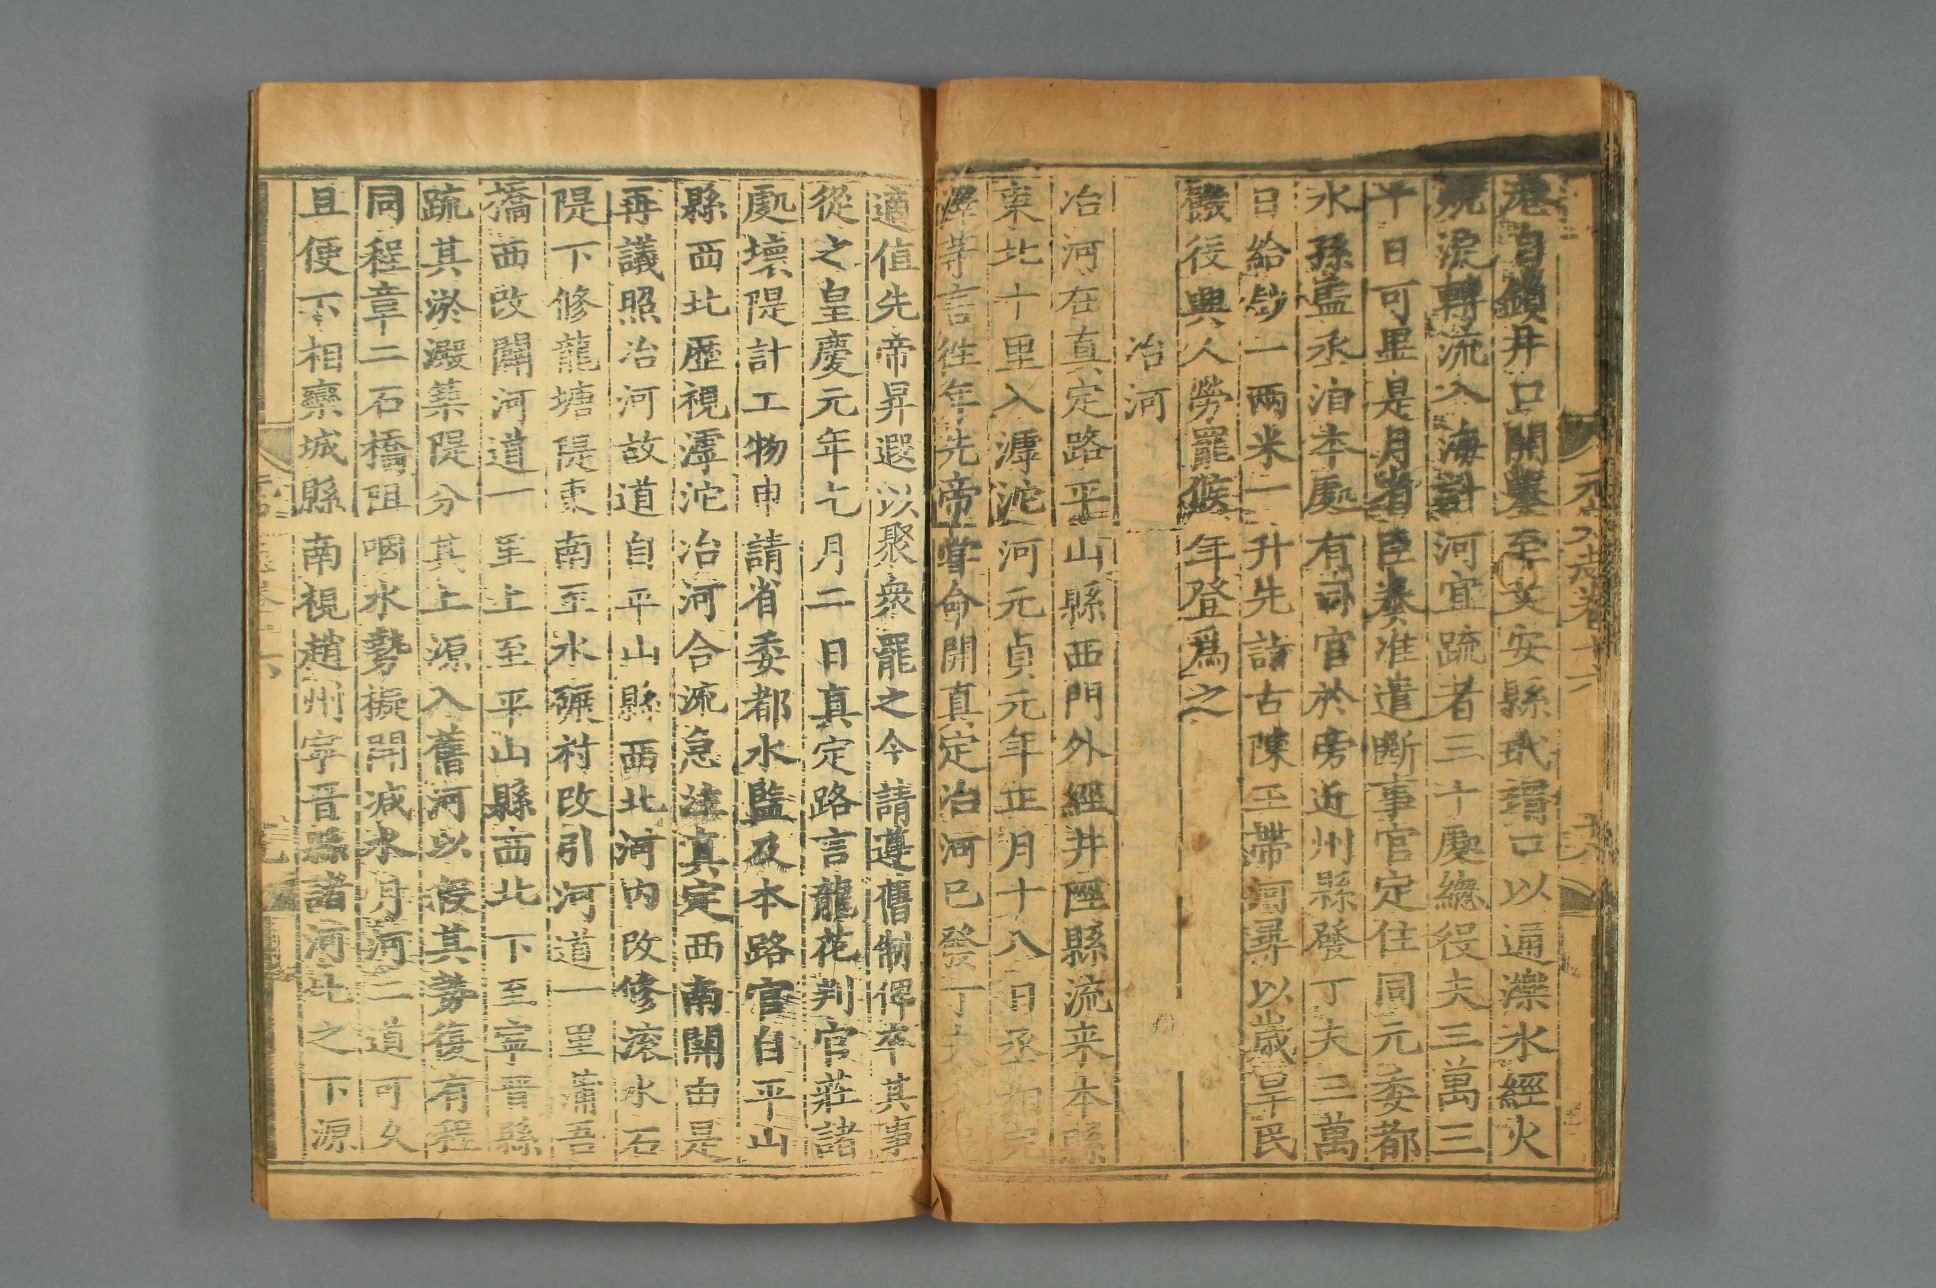 元史志卷十六
港自鎖井口開鑿至文安縣玳瑁口以通濼水經火
燒淀轉流入海計河宜疏者三十處總役夫三萬三
十日可畢是月省臣奏准遣斷事官定住同元委都
水孫監丞洎本處有司官於旁近州縣發丁夫三萬
日給鈔一兩米一升先詣古陳玉帶河尋以歲旱民
饑役興人勞罷候年登爲之
冶河
冶河在真定路平山縣西門外經井陘縣流來本縣
東北十里入滹沱河元貞元年正月十八日丞相完
澤等言往年先帝嘗命開真定冶河已發丁夫
適值先帝昇遐以聚衆罷之今請遵舊制俾卒其事
從之皇慶元年七月二日真定路言龍花判官莊諸
處壞隄計工物申請省委都水監及本路官自平山
縣西北歷視滹沱冶河合流急注真定西南關由是
再議照冶河故道自平山縣西北河內改修滾水石
隄下修龍塘隄東南至水碾村改引河道一里蒲吾
橋西改闢河道一里上至平山縣西北下至寧晉縣
疏其淤澱築隄分其上源入舊河以殺其勢復有程
同程章二石橋阻咽水勢擬開減水月河二道可久
且便下相欒城縣南視趙州寧晉縣諸河北之下源